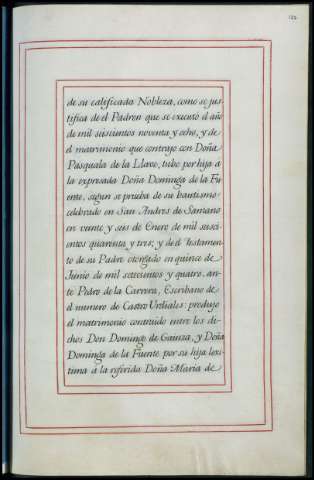 de su calificada Nobleza, como se jus-
tifica de el Padron que se executó el año
de mil seiscientos noventa y ocho, y de
el matrimonio que contrajo con Doña
Pasquala de la Llave, tubo por hija á
la expresada Doña Dominga de la Fu-
ente, segun se prueba de su bautismo
celebrado en San Andres de Samano
en veinte y seis de Enero de mil seisci-
entos quarenta y tres; y de el Testamen-
to de su Padre otorgado en quince de
Junio de mil setecientos y quatro, an-
te Pedro de la Carrera, Escribano de
el numero de Castro Urdiales: produjo
el matrimonio contraido entre los di-
chos Don Domingo de Gainza, y Doña
Dominga de la Fuente por su hija lexi-
tima á la referida Doña Maria de